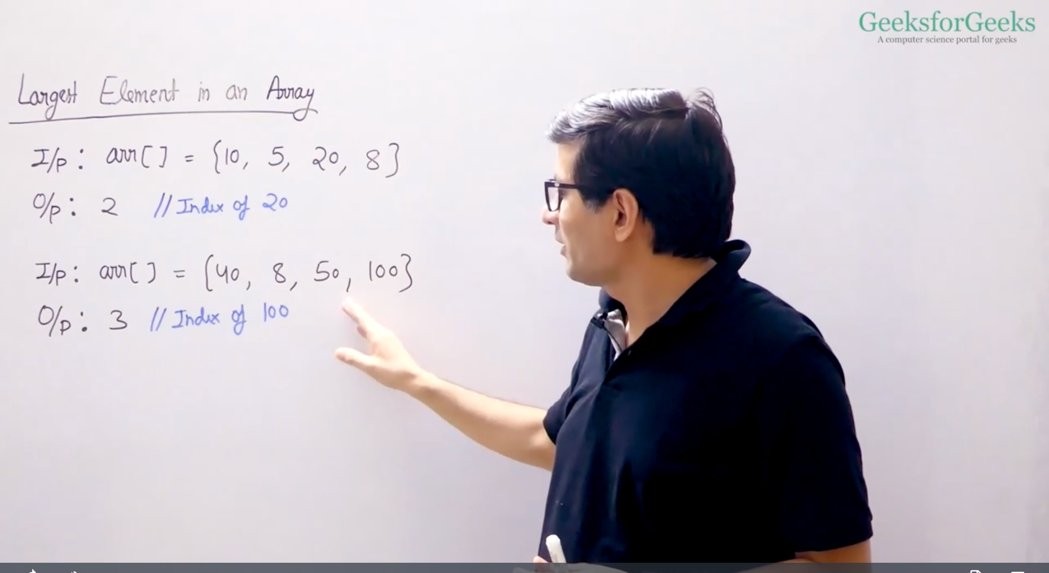 GeeksforGeeks
A computer science portal for geeks
Largest Element in an Array
I/p: arr[] = {10, 5, 20, 8}
O/p: 2 // Index of 20
I/p: arr[] = {40, 8, 50, 100}
O/p: 3 // Index of 100